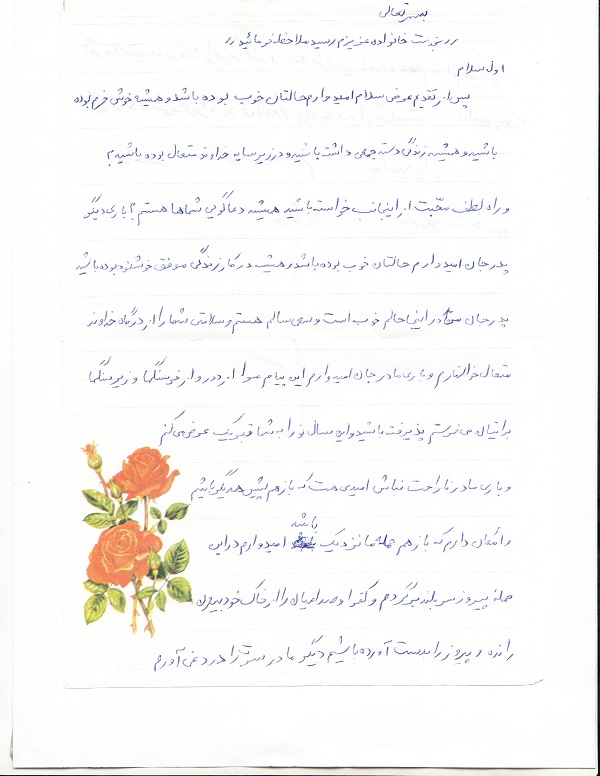 بسمه تعالی
خدمت خانواده عزیزم رسیده ملاحظه فرمائید
اول سلام
پس از تقدیم عرض سلام امیدوارم حالتان خوب بوده باشد و همیشه خوش خرم بوده
باشید و همیشه زندگی دسته جمعی داشته باشید و در زیر سایه خداوند متعال بوده باشید
و راه لطف محبت از اینجانب خواسته باشید همیشه دعاگوئی شماها هستم باری دیگر
پدر جان امیدوارم حالتان خوب بوده باشد و همیشه در کار زندگی موفق خوشنود بوده باشید
پدر جان در اینجا حالم خوب است و سالم هستم و سلامتی شما را از درگاه خداوند
متعال خواستارم و باری مادر جان امیدوارم این پیام مرا از دور و از فرسنگها و زیر سنگها
برایتان می فرستم پذیرفته باشید و این سال نو را به شما تبریک عرض می کنم
و باری مادر ناراحت نباش امیدی هست که باز هم پیش همدیگر باشیم
و امکان دارد که باز هم حمله ما نزدیک باشد امیدوارم در این
حمله پیروز سربلند برگردم و کفر و صدامیان را از خاک خود بیرون
رانده و پیروز را بدست آورده باشیم دیگر مادر سرت را درد نمی آورم